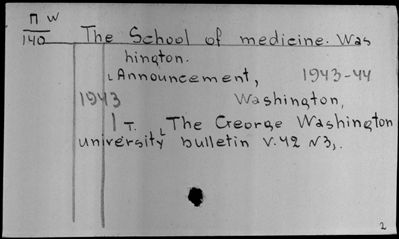 П W
140
The School of medicine. Was
hington.
Announcement, 1943-44
1943 Washington,
1 T. The George Washington
university bulletin V.42 N3,.
2